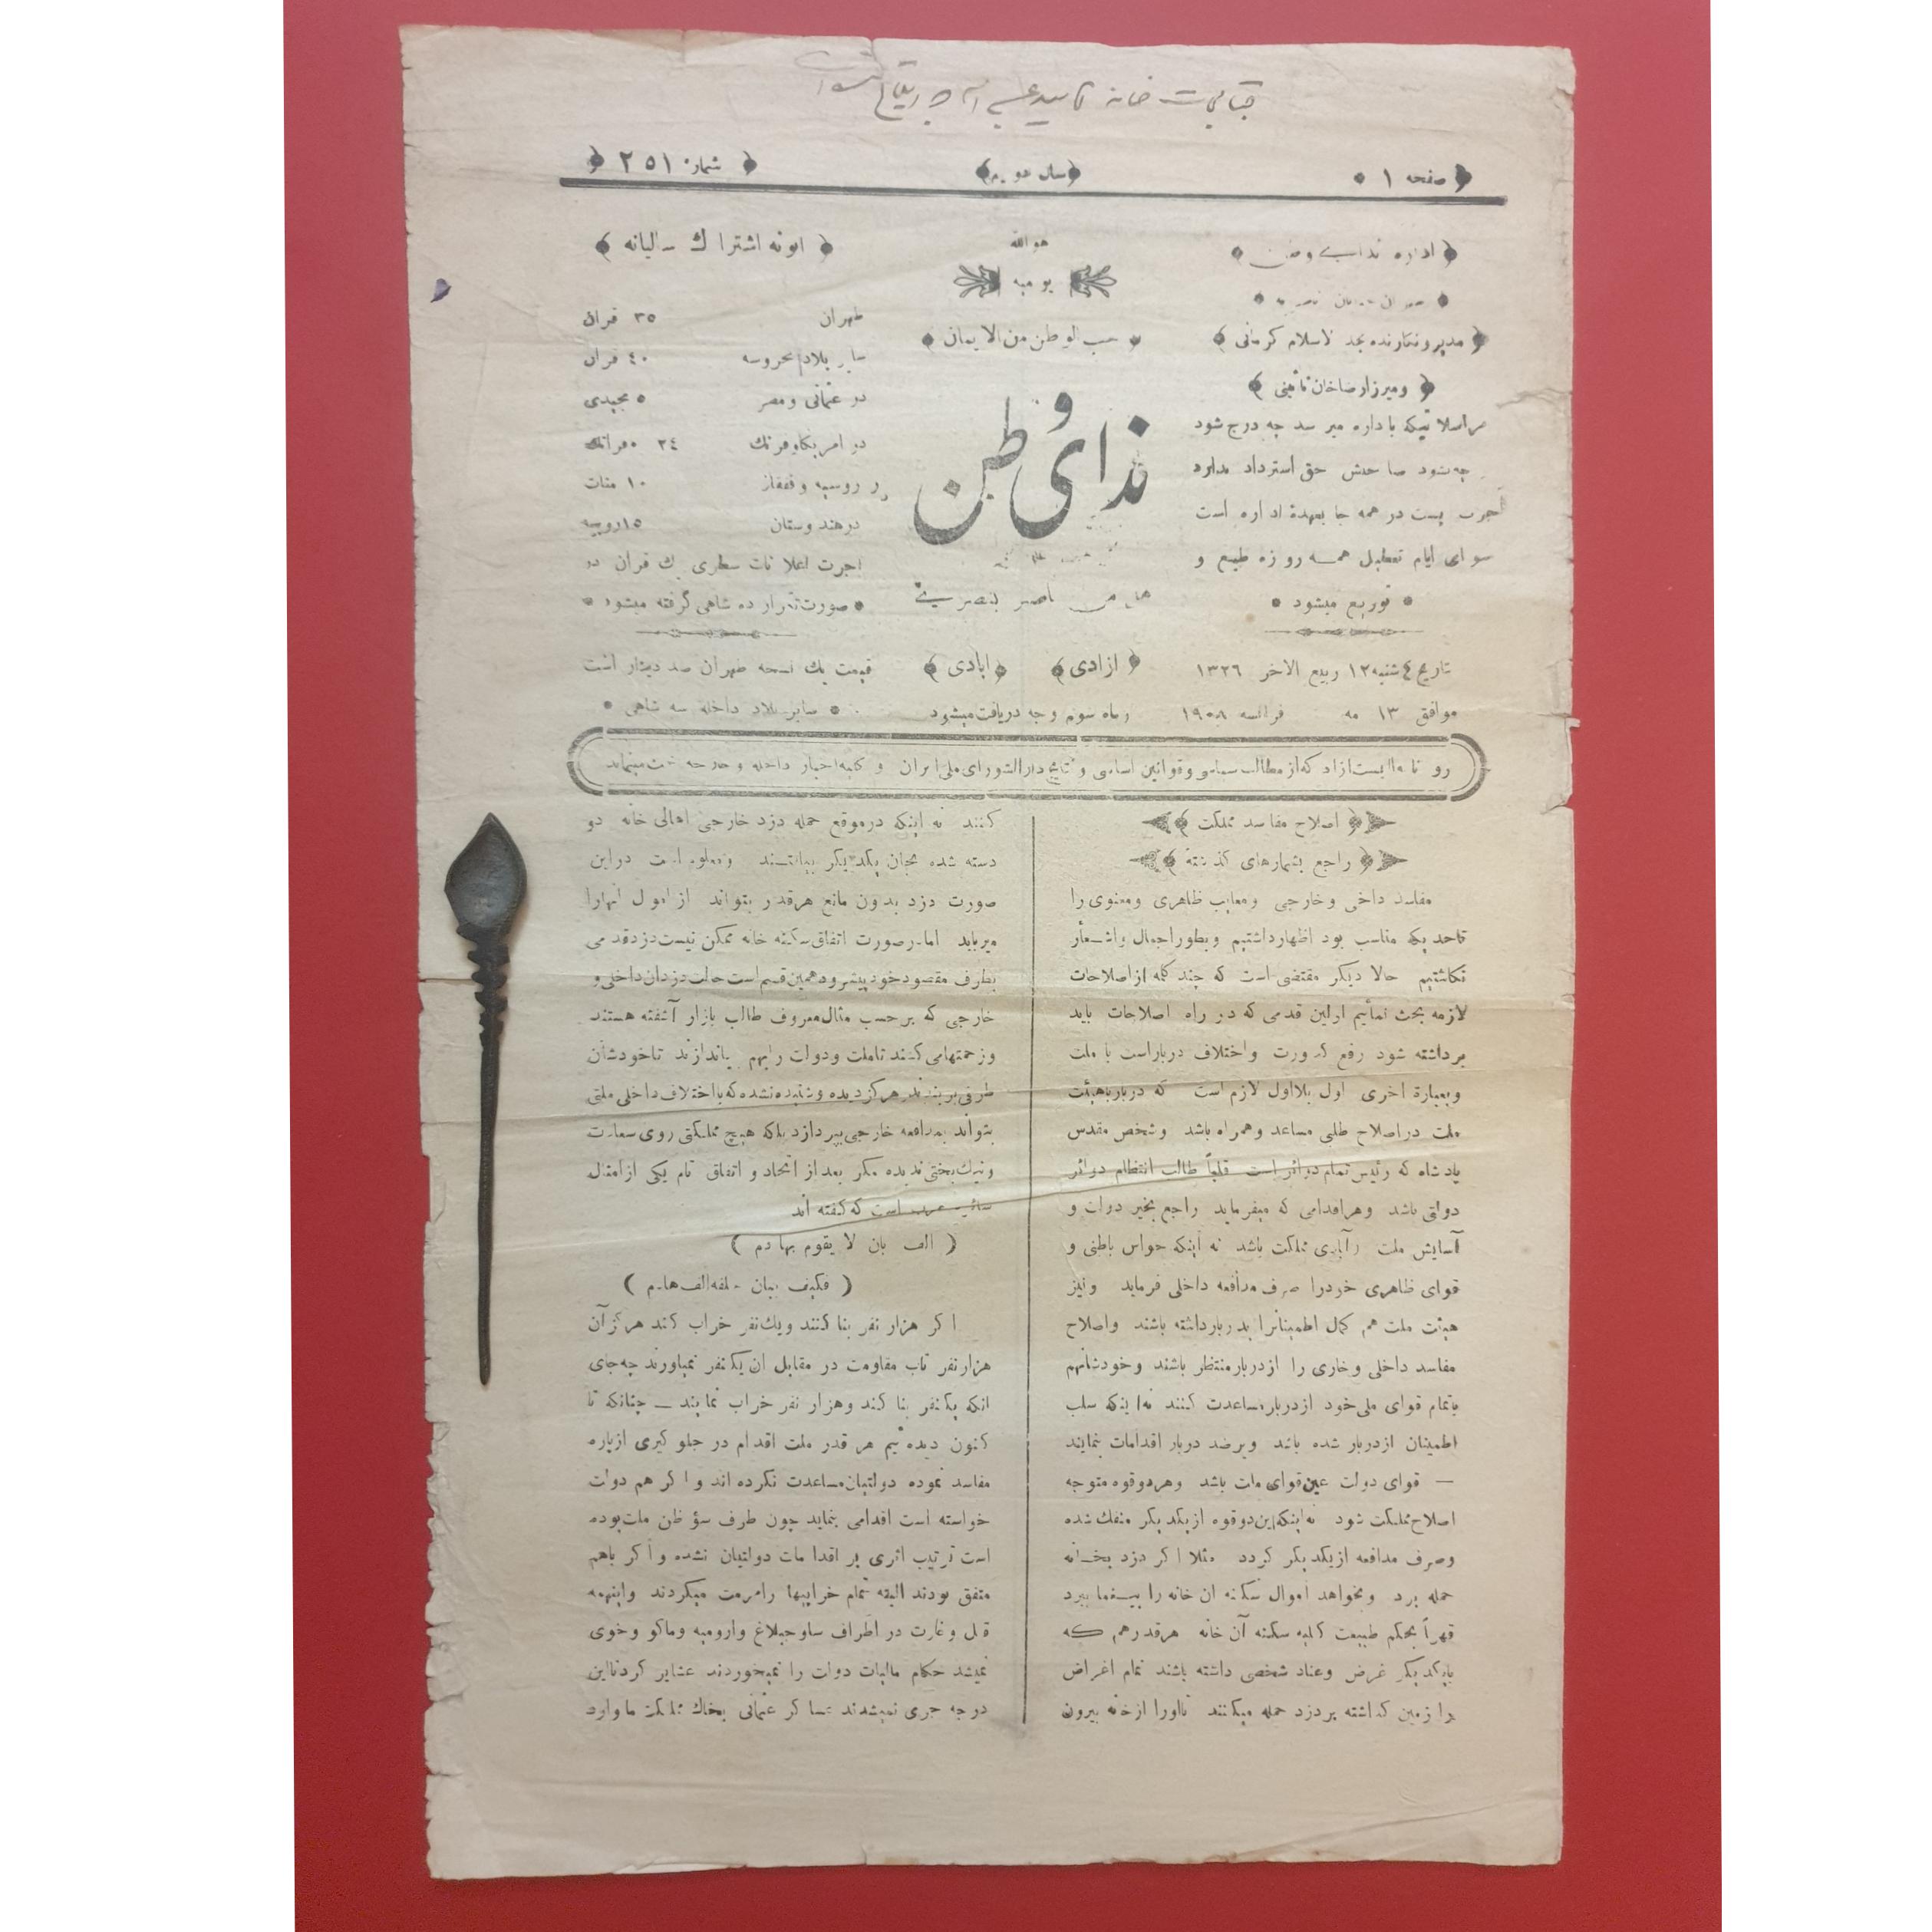 صفحه ۱
سال دویم
شماره ۲۵۱
اداره ندای وطن
مدیر و نگارنده مجد الاسلام کرمانی
و میرزا رضاخان نائینی
مراسلاتیکه باداره میرسد چه درج شود
چه نشود صاحبش حق استرداد ندارد
اجرت پست در همه جا بعهدهٔ اداره است
سوای ایام تعطیل همه روزه طبع و
توزیع میشود
تاریخ ٤شنبه ۱۲ ربیع الاخر ۱۳۲٦
موافق ۱۳ مه فرانسه ۱۹۰۸
هوالله
یومیه
حب الوطن من الایمان
ندای وطن
هل من ناصر ینصرنی
ازادی
ابادی
وجه دریافت میشود
ابونه اشتراك سالیانه
طهران ۳٥ قران
سایر بلاد محروسه ٤۰ قران
در عثمانی و مصر ٥ مجیدی
در امریکا و فرنك ۲٤ فرانك
در روسیه و قفقاز ۱۰ منات
در هندوستان ۱٥ روپیه
اجرت اعلانات سطری یك قران در
صورت تکرار ده شاهی گرفته میشود
قیمت یك نسخه طهران صد دینار است
سایر بلاد داخله سه شاهی
روزنامه ایست ازاد که از مطالب سیاسی و قوانین اساسی و نتایج دارالشورای ملی ایران و کلیه اخبار داخله و خارجه بحث مینماید
اصلاح مفاسد مملکت
راجع بشمارهای گذشته
مفاسد داخلی و خارجی و معایب ظاهری و معنوی را
تاحدیکه مناسب بود اظهار داشتیم و بطور اجمال و اشعار
نگاشتیم حالا دیگر مقتضی است که چند کلمه از اصلاحات
لازمه بحث نمائیم اولین قدمی که در راه اصلاحات باید
برداشته شود رفع کدورت و اختلاف دربار است با ملت
و بعبارة اخری اول بلااول لازم است که دربار باهیئت
ملت در اصلاح طلبی مساعد و همراه باشد و شخص مقدس
پادشاه که رئیس تمام دوائر است قلباً طالب انتظام دوائر
دولتی باشد و هر اقدامی که میفرماید راجع بخیر دولت و
آسایش ملت و آبادی مملکت باشد نه اینکه حواس باطنی و
قوای ظاهری خودرا صرف مدافعه داخلی فرماید و نیز
هیئت ملت هم کمال اطمینانرا بدربار داشته باشند و اصلاح
مفاسد داخلی و خارجی را از دربار منتظر باشند و خودشانهم
باتمام قوای ملی خود از دربار مساعدت کنند نه اینکه سلب
اطمینان از دربار شده باشد و برضد دربار اقدامات بنمایند
— قوای دولت عین قوای ملت باشد و هر دو قوه متوجه
اصلاح مملکت شود نه اینکه این دو قوه از یکدیگر منفك شده
و صرف مدافعه از یکدیگر گردد مثلا اگر دزد بخانه
حمله برد و بخواهد اموال سکنه ان خانه را بیغما ببرد
قهراً بحکم طبیعت کلیه سکنه آن خانه هرقدر هم که
بایکدیگر غرض و عناد شخصی داشته باشند تمام اغراض
را زمین گذاشته بر دزد حمله میکنند تا اورا ازخانه بیرون
کنند نه اینکه در موقع حمله دزد خارجی اهالی خانه دو
دسته شده بجان یکدیگر بیافتند و معلوم است در این
صورت دزد بدون مانع هرقدر بتواند از اموال انهارا
میرباید اما در صورت اتفاق سکنه خانه ممکن نیست دزد قدمی
بطرف مقصود خود پیش رود همین قسم است حالت دزدان داخلی و
خارجی که برحسب مثال معروف طالب بازار آشفته هستند
و زحمتها می کشند تا ملت و دولت را بهم بیاندازند تا خودشان
طرفی بربندند هرگز دیده و شنیده نشده که بااختلاف داخلی ملتی
بتواند بمدافعه خارجی بپردازد بلکه هیچ مملکتی روی سعادت
و نیك بختی ندیده مگر بعد از اتحاد و اتفاق تام یکی از امثال
سائره عرب است که گفته اند
( الف بان لا یقوم بهادم )
( فکیف ببان خلفه الف هادم )
اگر هزار نفر بنا کنند و یك نفر خراب کند هرگز آن
هزار نفر تاب مقاومت در مقابل ان یکنفر نمیاورند چه جای
انکه یکنفر بنا کند و هزار نفر خراب نمایند — چنانکه تا
کنون دیده ایم هر قدر ملت اقدام در جلو گیری از پاره
مفاسد نموده دولتیان مساعدت نکرده اند و اگر هم دولت
خواسته است اقدامی بنماید چون طرف سؤ ظن ملت بوده
است ترتیب اثری بر اقدامات دولتیان نشده و اگر باهم
متفق بودند البته تمام خرابیها را مرمت میکردند و اینهمه
قتل و غارت در اطراف ساوجبلاغ و ارومیه و ماکو و خوی
نمیشد حکام مالیات دولت را نمیخوردند عشایر کردتا این
درجه جری نمیشدند عساکر عثمانی بخاك مملکت ما وارد